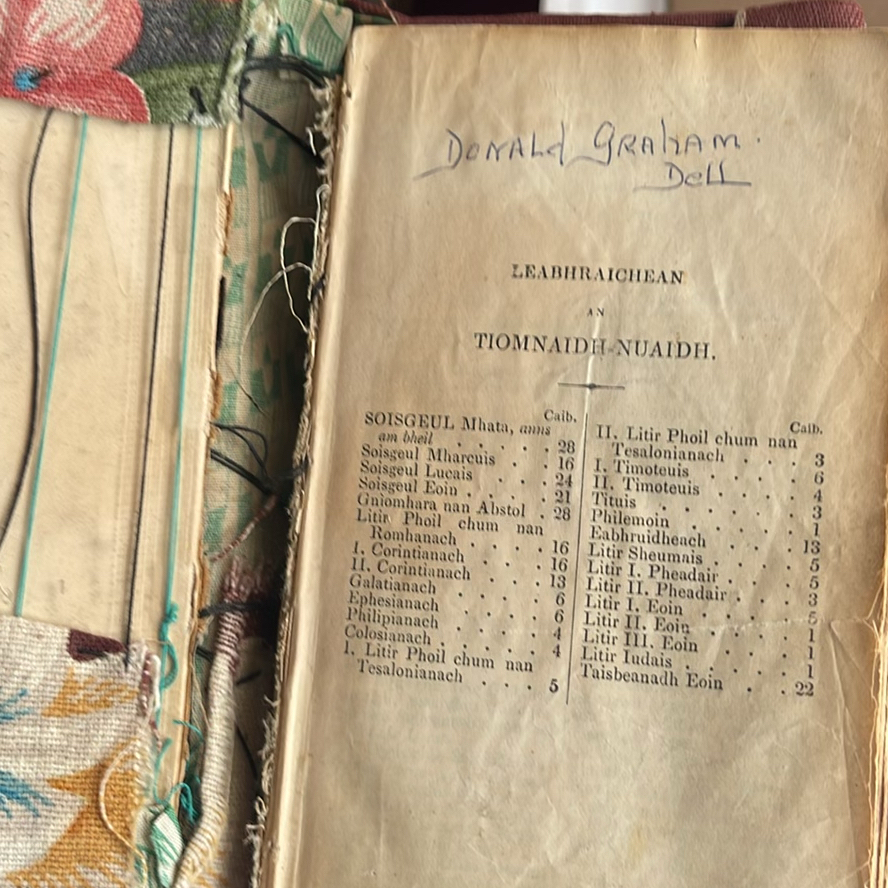 DONALD GRAHAM.
Dell
LEABHRAICHEAN
AN
TIOMNAIDH-NUAIDH.
Caib.
SOISGEUL Mhata, anns
am bheil . . . . 28
Soisgeul Mharcuis . . 16
Soisgeul Lucais . . . 24
Soisgeul Eoin . . . . 21
Gniomhara nan Abstol . 28
Litir Phoil chum nan
Romhanach . . . . 16
I. Corintianach . . . 16
II. Corintianach . . . 13
Galatianach . . . . 6
Ephesianach . . . . 6
Philipianach . . . . 4
Colosianach . . . . 4
I. Litir Phoil chum nan
Tesalonianach . . . 5
Caib.
II. Litir Phoil chum nan
Tesalonianach . . . 3
I. Timoteuis . . . . 6
II. Timoteuis . . . . 4
Tituis . . . . . 3
Philemoin . . . . 1
Eabhruidheach . . . 13
Litir Sheumais . . . 5
Litir I. Pheadair . . . 5
Litir II. Pheadair . . . 3
Litir I. Eoin . . . . 5
Litir II. Eoin . . . . 1
Litir III. Eoin . . . . 1
Litir Iudais . . . . 1
Taisbeanadh Eoin . . 22